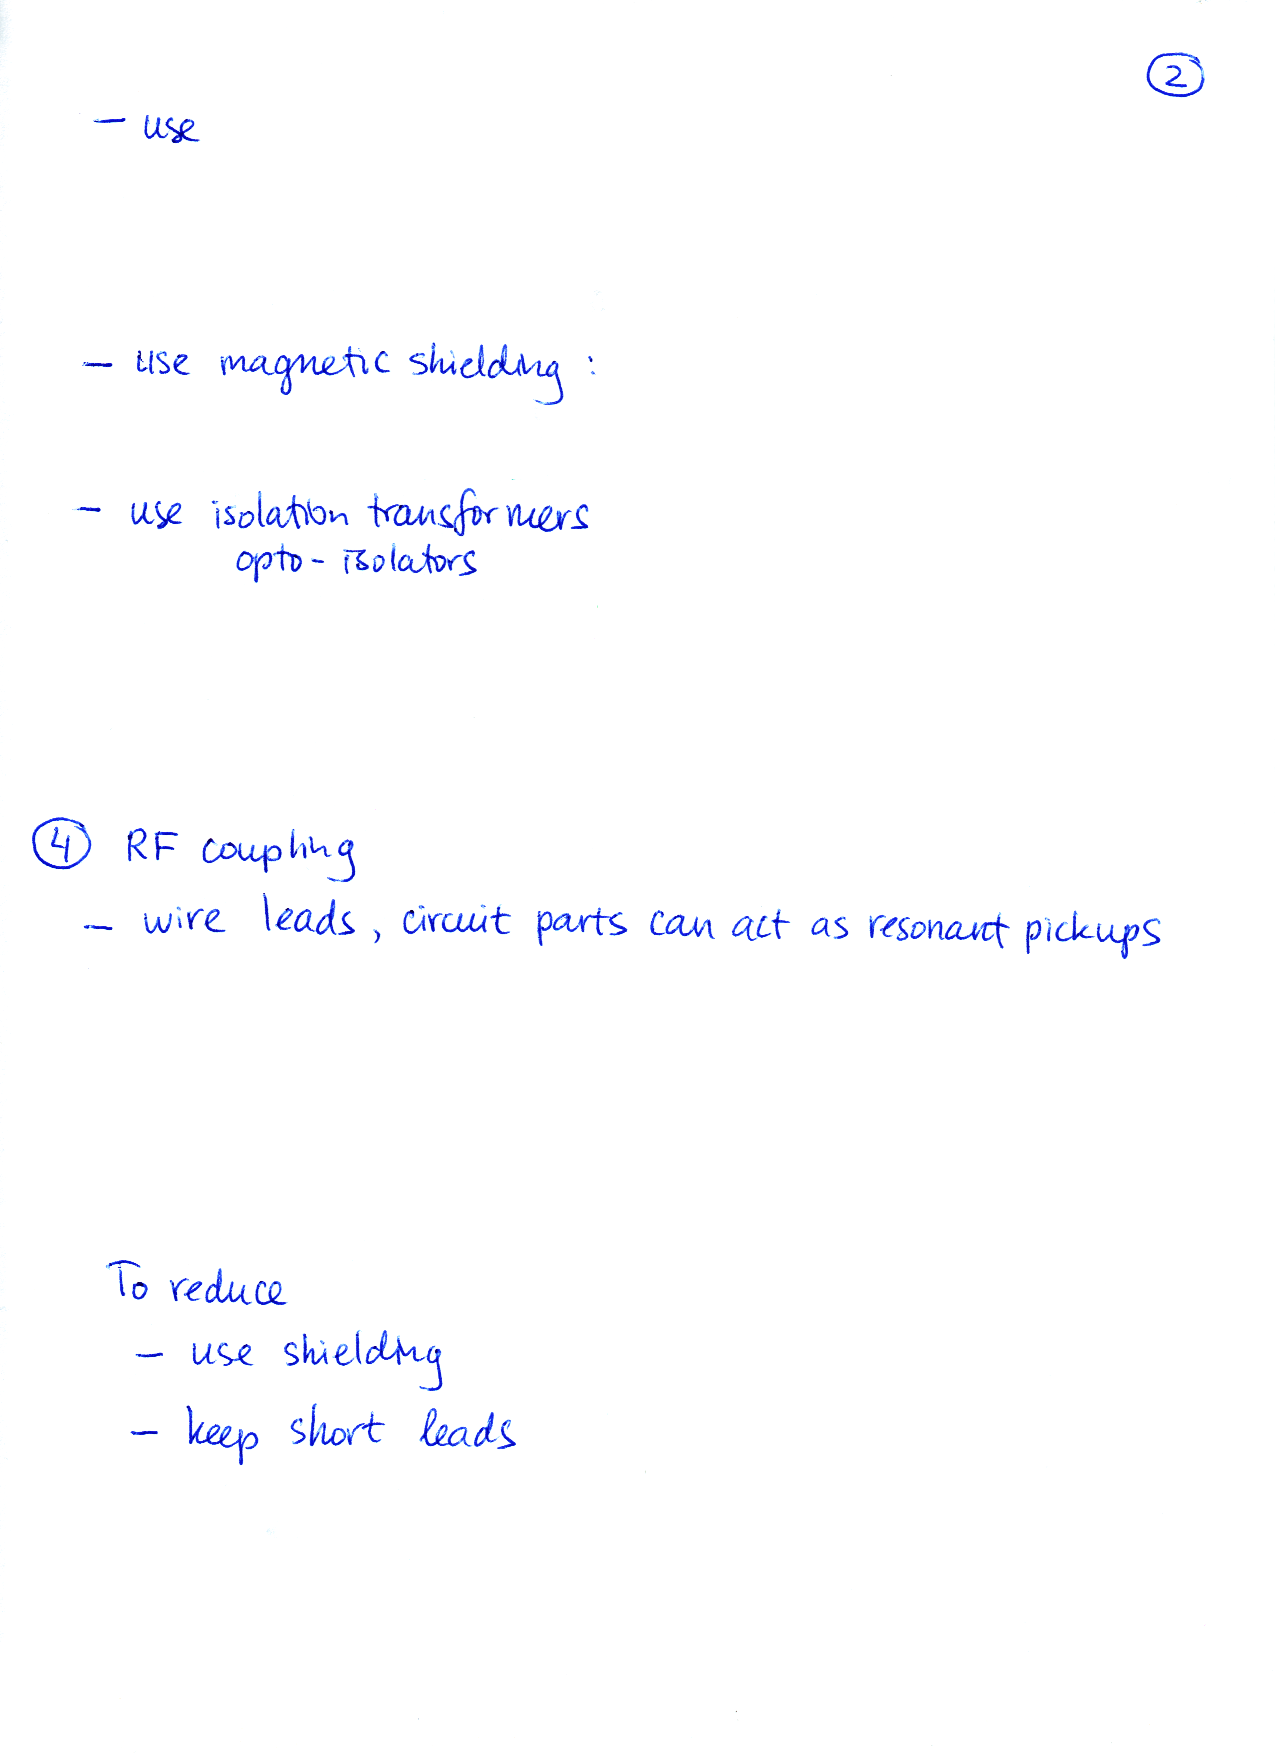 2
- use
- use magnetic shielding :
- use isolation transformers
opto - isolators
4 RF coupling
- wire leads, circuit parts can act as resonant pickups
To reduce
- use shielding
- keep short leads